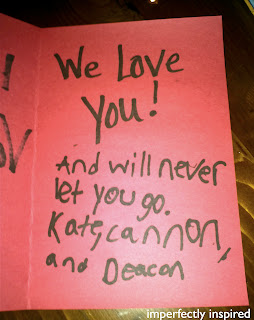 We Love
You!
And will never
let you go.
Kate, cannon,
and Deacon
imperfectly inspired